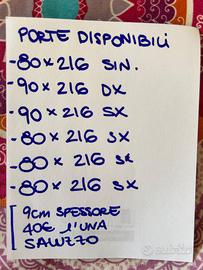 PORTE DISPONIBILI
-80x216 SIN.
-90x216 DX
-90x216 SX
-80x216 SX
-80x216 SX
-80x216 SX
9cm SPESSORE
40€ l'UNA
SALUZZO
subito